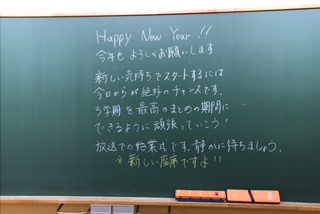 Happy New Year !!
今年も よろしくお願いします
新しい気持ちでスタートするには
今日からが絶好のチャンスです。
3学期を最高のまとめの期間に
できるように頑張っていこう!
放送での始業式です。静かに待ちましょう。
※新しい座席ですよ!!